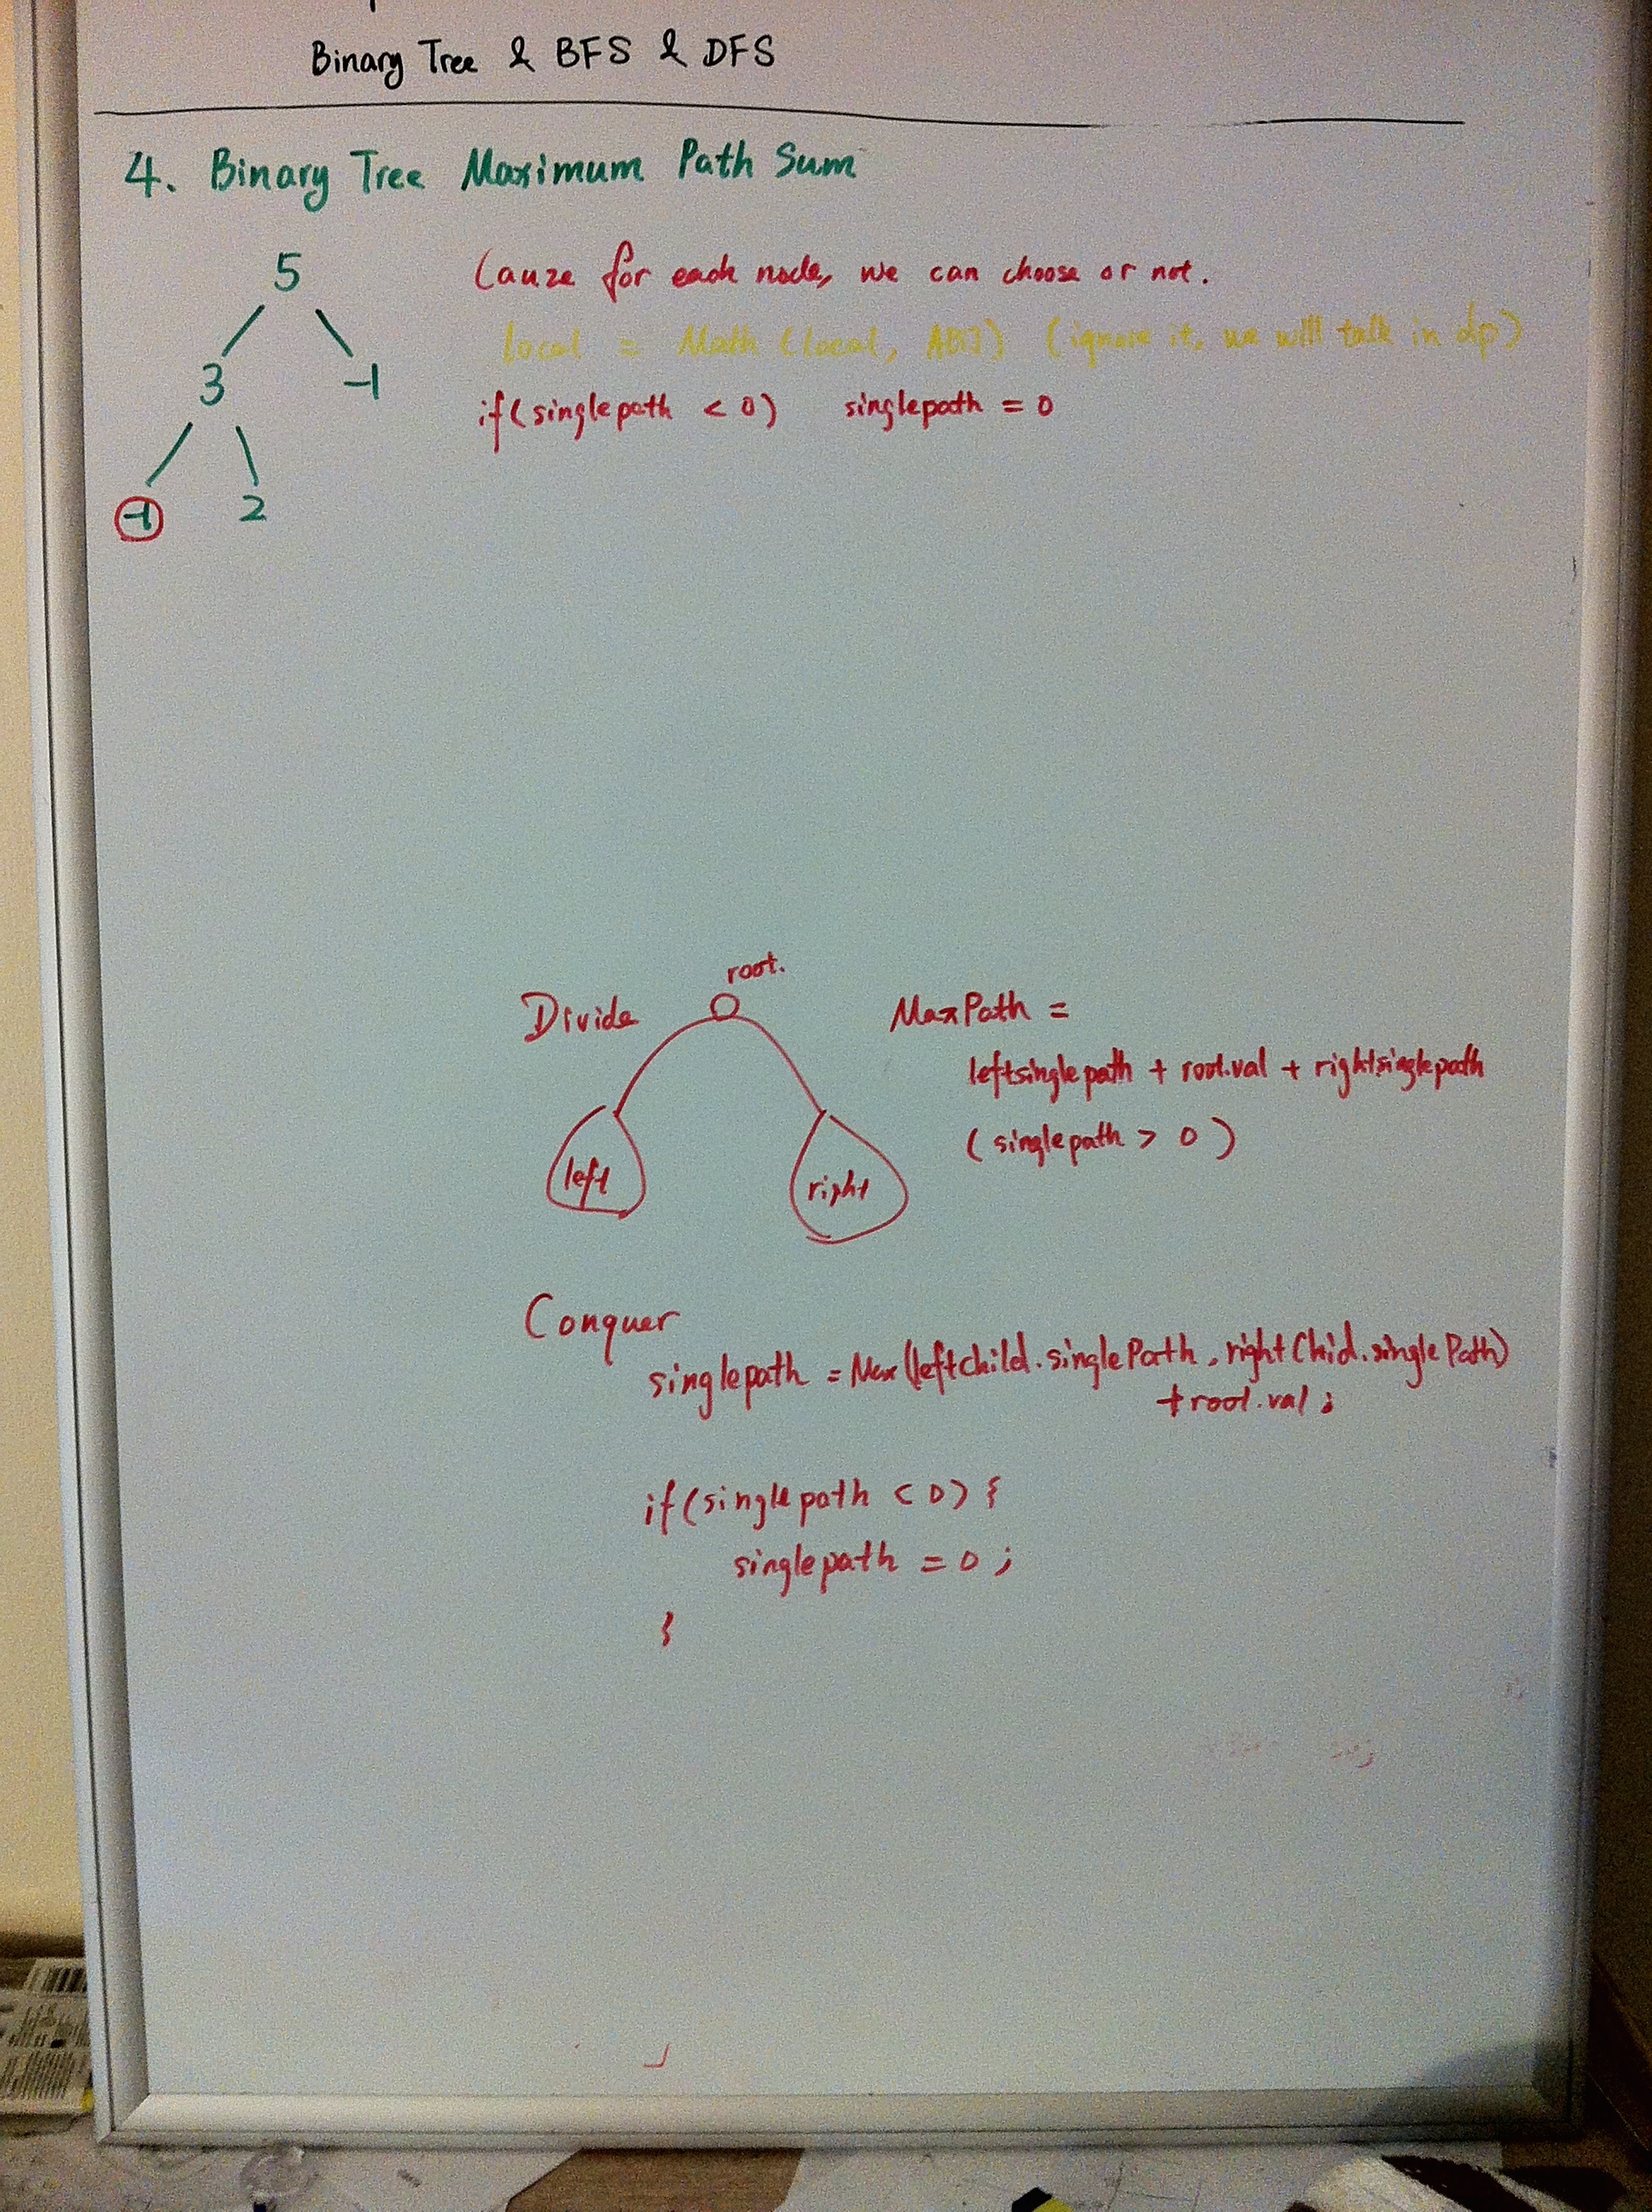 Binary Tree & BFS & DFS
4. Binary Tree Maximum Path Sum
5
3 -1
-1 2
Cauze for each node, we can choose or not.
local = Math (local, A[i]) (ignore it, we will talk in dp)
if(singlepath < 0) singlepath = 0
root.
Divide
left
right
MaxPath =
leftsinglepath + root.val + rightsinglepath
(singlepath > 0)
Conquer
singlepath = Max(leftchild.singlePath, rightChid.singlePath)
+ root.val;
if(singlepath < 0) {
singlepath = 0;
}